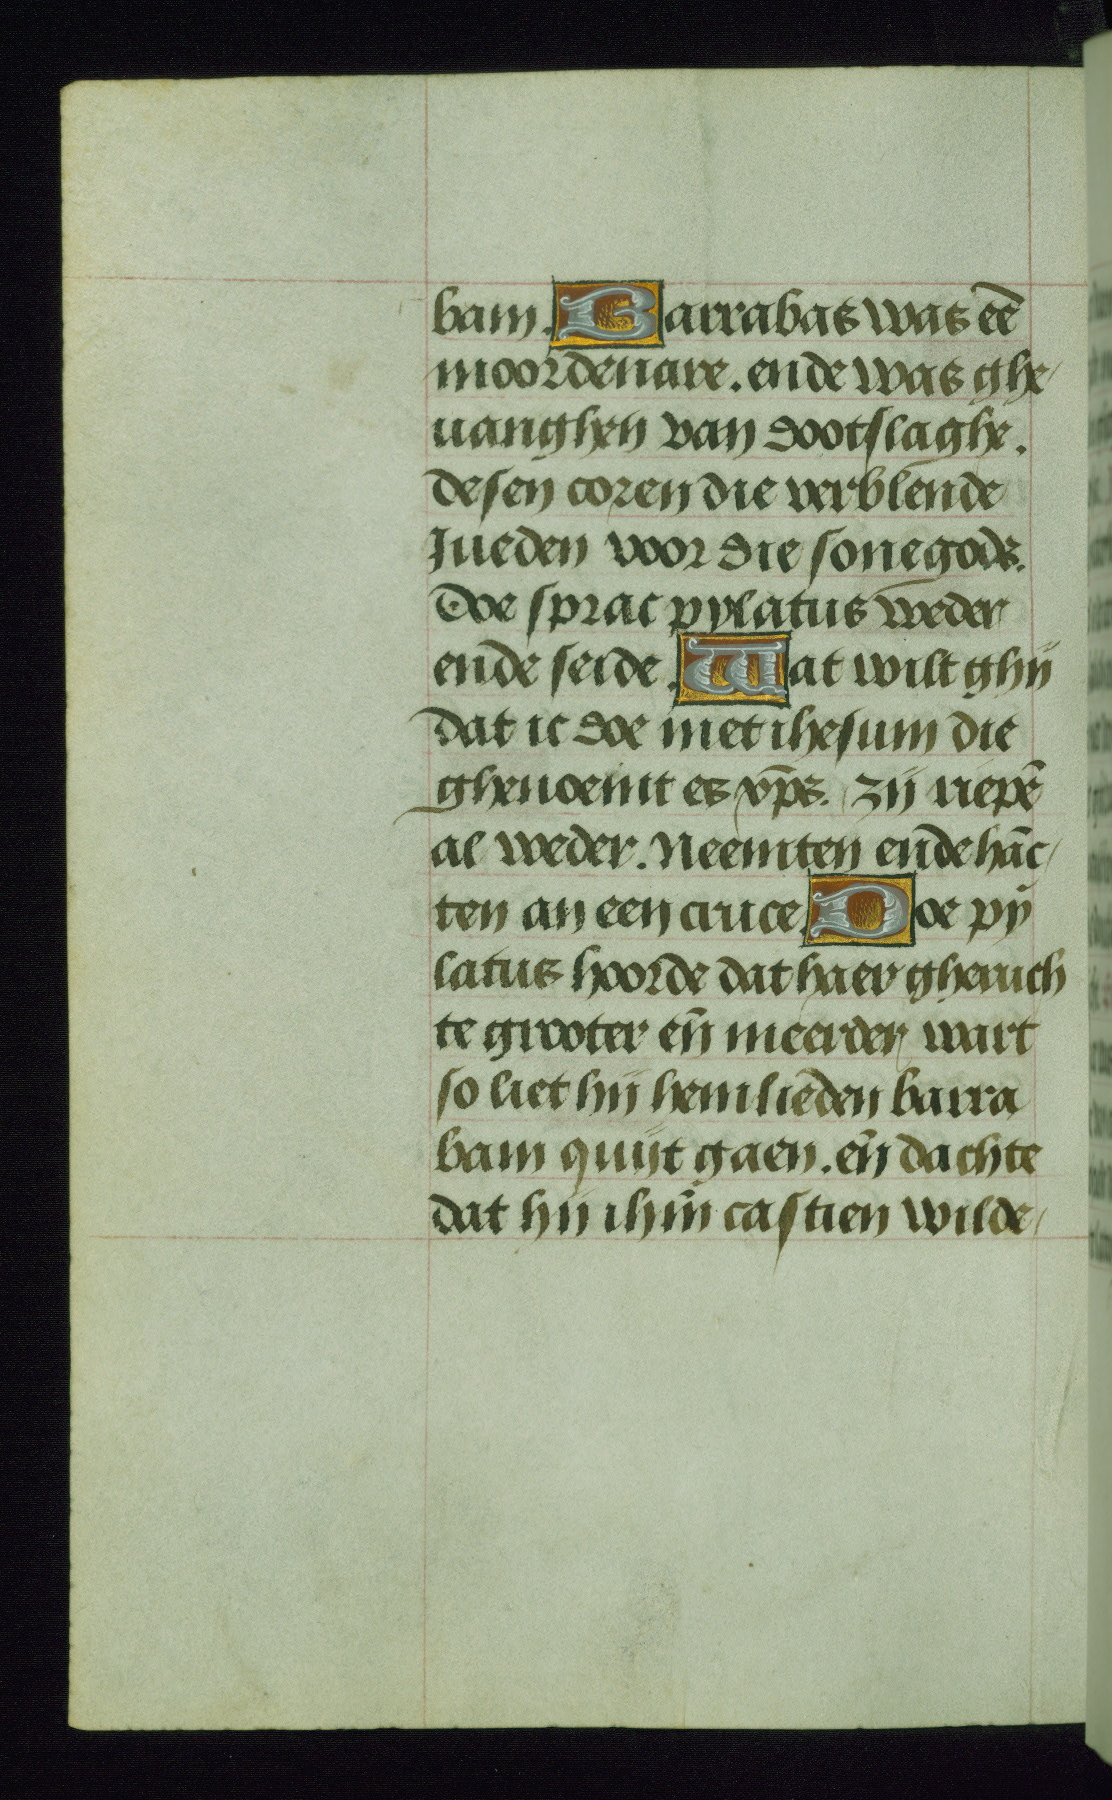 bam. Barrabas was eē
moordenare. ende was ghe/
uanghen van dootslaghe.
desen coren die verblende
Jueden voor die sone gods.
Doe sprac pylatus weder
ende seide. Wat wilt ghij
dat ic doe met ihesum die
ghenoemt es xp̄s. zij riepē
al weder. Neemten ende hāc/
ten an een cruce. Doe py
latus hoorde dat haer gheruch
te grooter eñ meerder wart
so liet hij hemlieden barra
bam quijt gaen. eñ dachte
dat hij ihm̄ castien wilde/